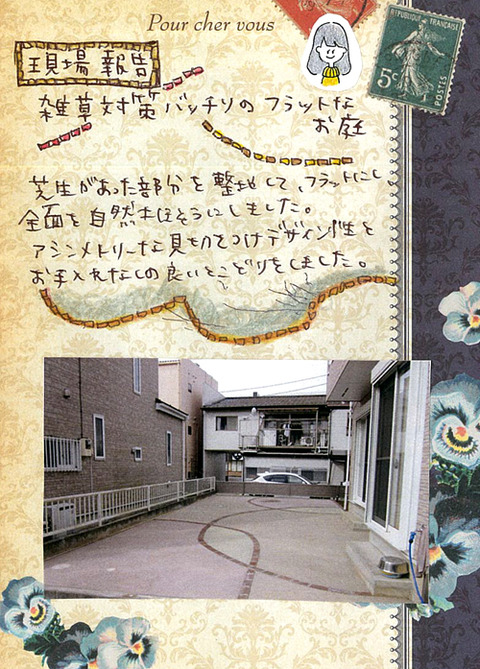 Pour cher vous
RÉPUBLIQUE FRANÇAISE
5c
POSTES
現場報告
雑草対策バッチリの フラットな
お庭
芝生があった部分を整地して、フラットにし
全面を自然本ほそうにしました。
アシンメトリーな見切をつけデザイン性と
お手入れなしの良いとこどりをしました。